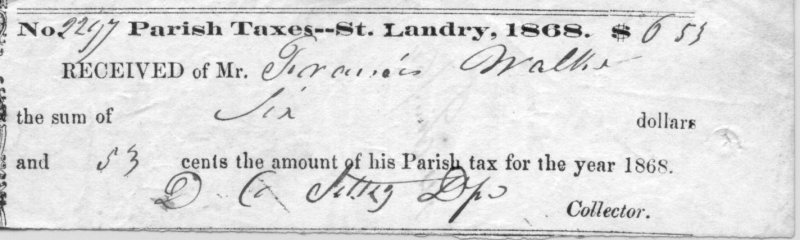 No. 2297 Parish Taxes--St. Landry, 1868. $ 6 53
RECEIVED of Mr. Francois Walke
the sum of Six dollars
and 53 cents the amount of his Parish tax for the year 1868.
D. C. Dps
Collector.